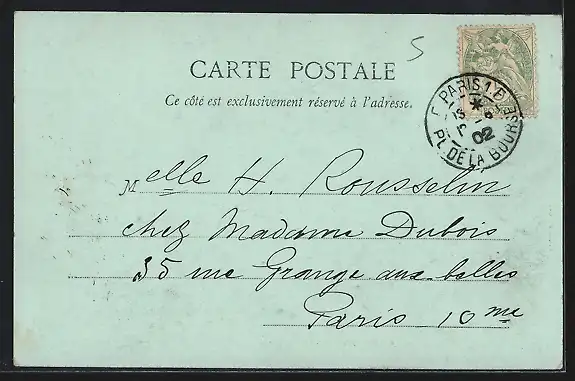 5
CARTE POSTALE
Ce côté est exclusivement réservé à l'adresse.
PARIS 1
02
PL. DE LA BOURSE
Melle H. Rousselin
chez Madame Dubois
35 rue Grange aux belles
Paris 10me